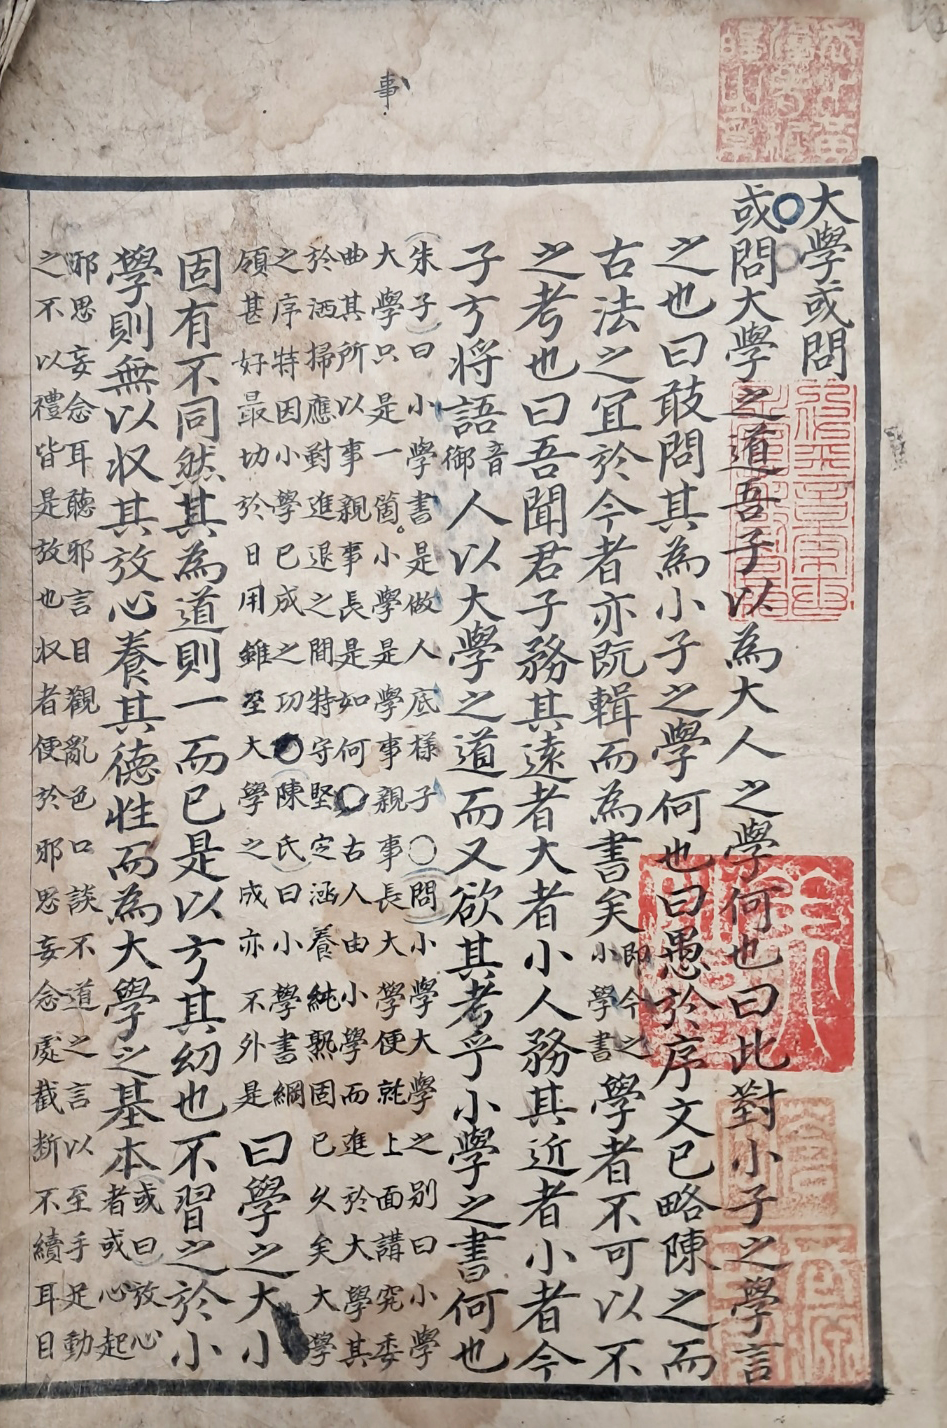 事
大學或問
或問大學之道吾子以為大人之學何也曰此對小子之學言
之也曰敢問其為小子之學何也曰愚於序文已略陳之而
古法之冝於今者亦旣輯而為書矣即今之小學書學者不可以不
之考也曰吾聞君子務其遠者大者小人務其近者小者今
子方將語音御人以大學之道而又欲其考乎小學之書何也
朱子曰小學書是做人底樣子○問小學大學之别曰小學
大學只是一箇。小學是學事親事長大學便就上面講究委
曲其所以事親事長是如何○古人由小學而進於大學其
於洒掃應對進退之間特守堅定涵養純熟固已久矣大學
之序特因小學已成之功○陳氏曰小學書綱
領甚好最切於日用雖至大學之成亦不外是
曰學之大小
固有不同然其為道則一而已是以方其幼也不習之於小
學則無以收其放心養其德性而為大學之基本或曰放心者或心起
邪思妄念耳聽邪言目觀亂色口談不道之言以至手足動
之不以禮皆是放也收者便於邪思妄念處截斷不續耳目